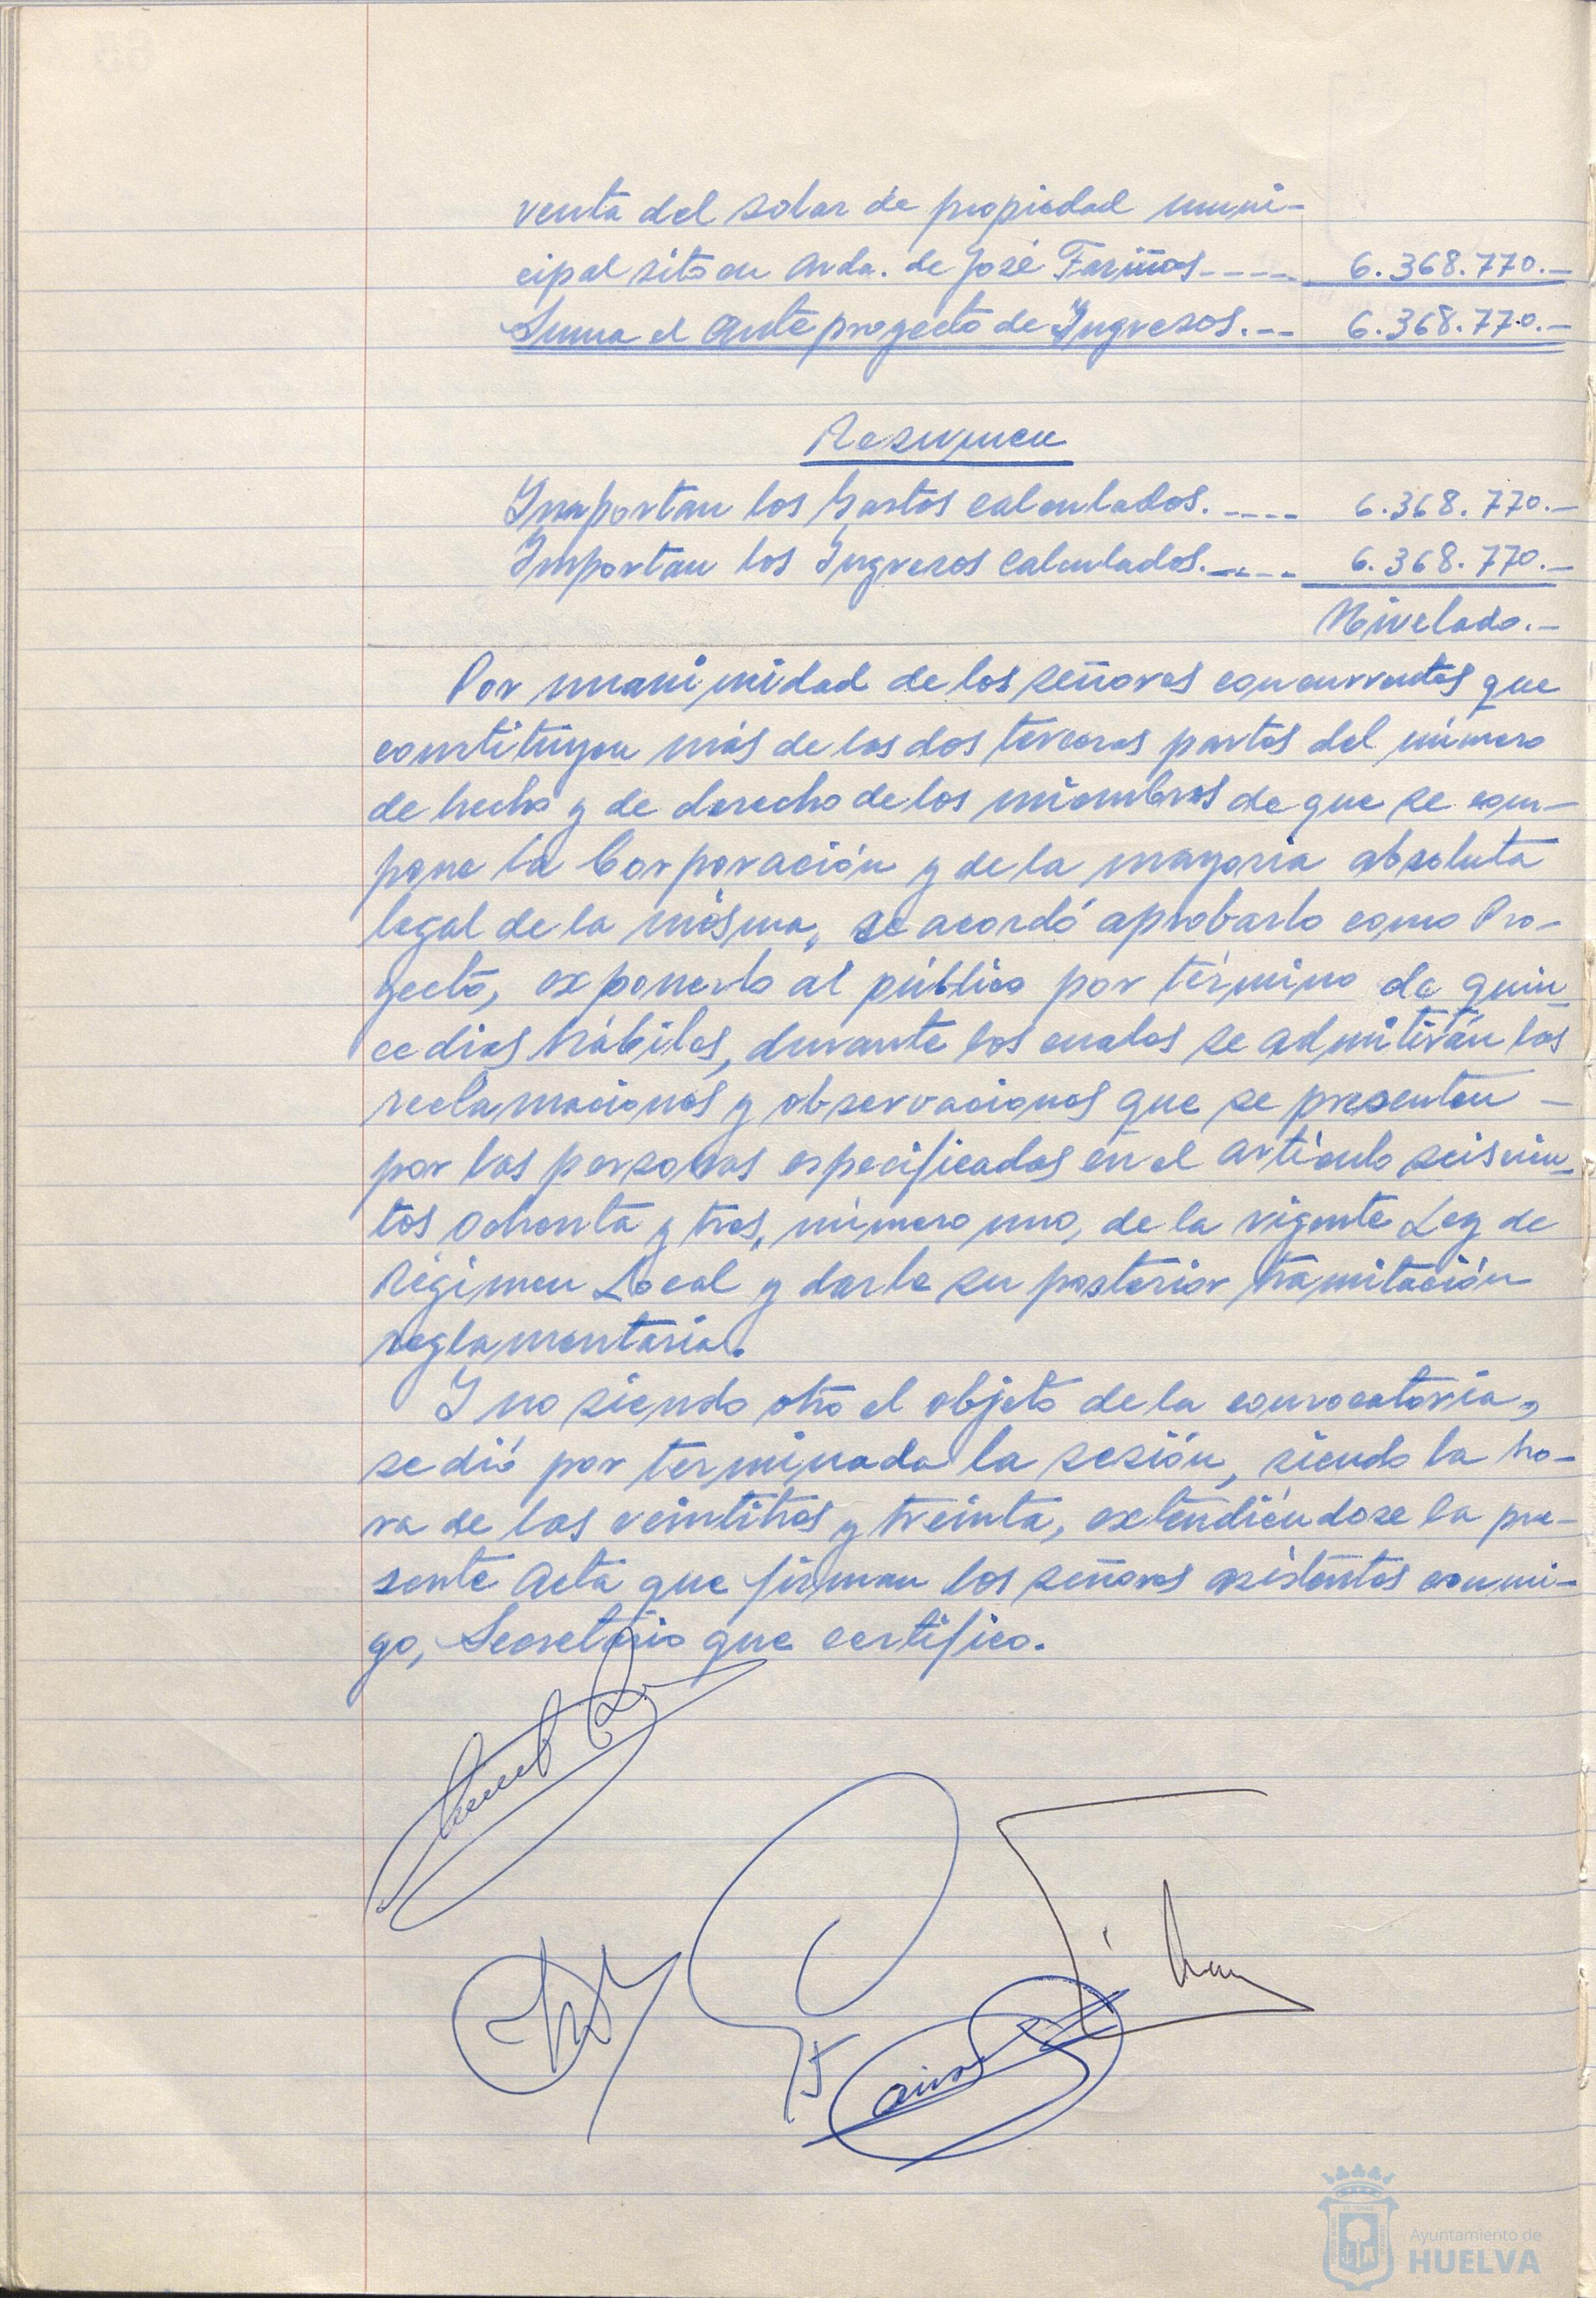 venta del solar de propiedad muni-
cipal sito en Avda. de José Fariñas---- 6.368.770.-
Suma el Anteproyecto de Ingresos.-- 6.368.770.-
Resumen
Importan los Gastos calculados.---- 6.368.770.-
Importan los Ingresos calculados.---- 6.368.770.-
Nivelado.-
Por unanimidad de los señores concurrentes que
constituyen más de las dos terceras partes del número
de hecho y de derecho de los miembros de que se com-
pone la Corporación y de la mayoria absoluta
legal de la misma, se acordó aprobarlo como Pro-
yecto, exponerlo al público por término de quin-
ce dias hábiles, durante los cuales se admitirán las
reclamaciones y observaciones que se presenten -
por las personas especificadas en el artículo seiscien-
tos ochenta y tres, número uno, de la vigente Ley de
Régimen Local y darle su posterior tramitación
reglamentaria.
Y no siendo otro el objeto de la convocatoria,
se dió por terminada la sesión, siendo la ho-
ra de las veintitres y treinta, extendiéndose la pre-
sente Acta que firman los señores asistentes conmi-
go, Secretario que certifico.
Ayuntamiento de
HUELVA